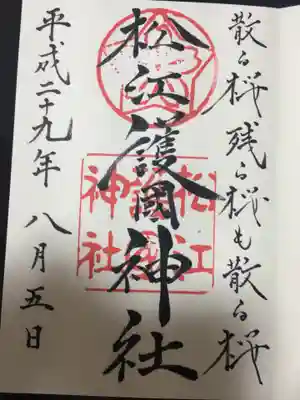 散る桜残る桜も散る桜
松江護國神社
松江護國神社
平成二十九年 八月五日